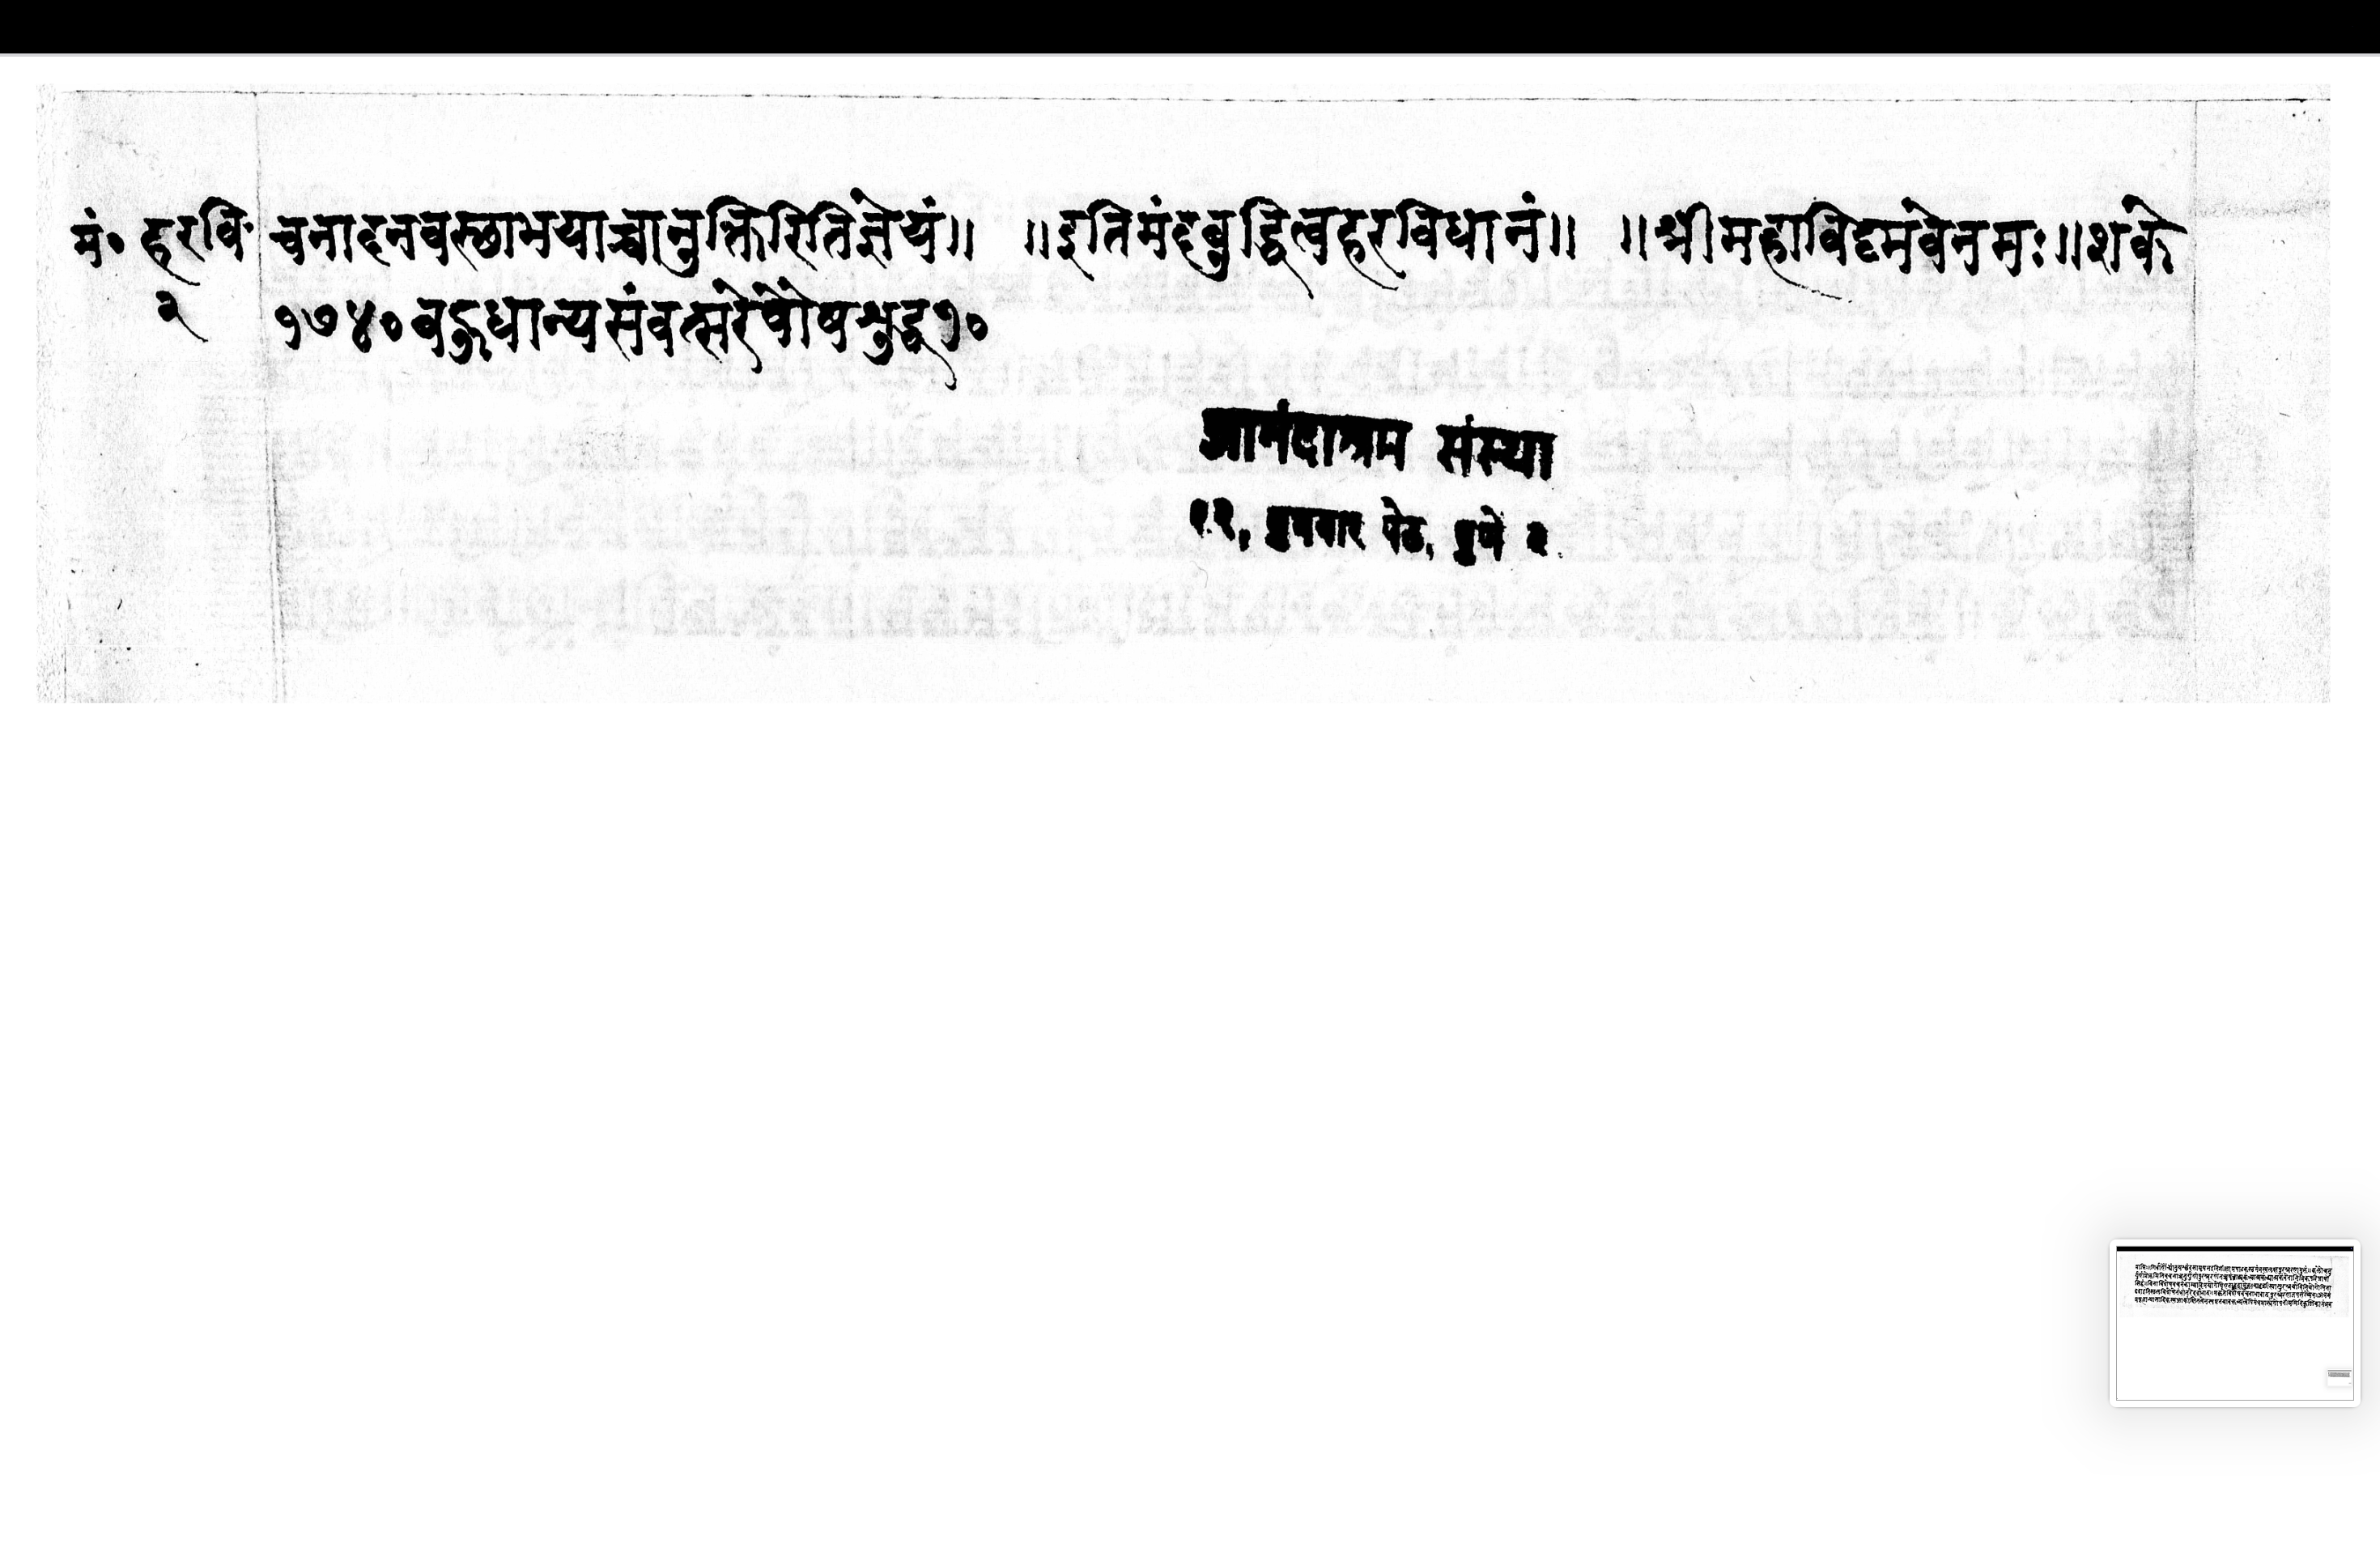 मं० हरवि॰ चनादनवस्छाभयाच्चानुक्तिरितिज्ञेयं॥ ॥इतिमंदबुद्धित्वहरविधानं॥ ॥श्रीमहाविद्दमवेनमः॥शके
२ १७४० बहुधान्यसंवत्सरेपौषशुद्ध१०
आनंदाश्रम संस्था
२२, बुधवार पेठ, पुणे २.